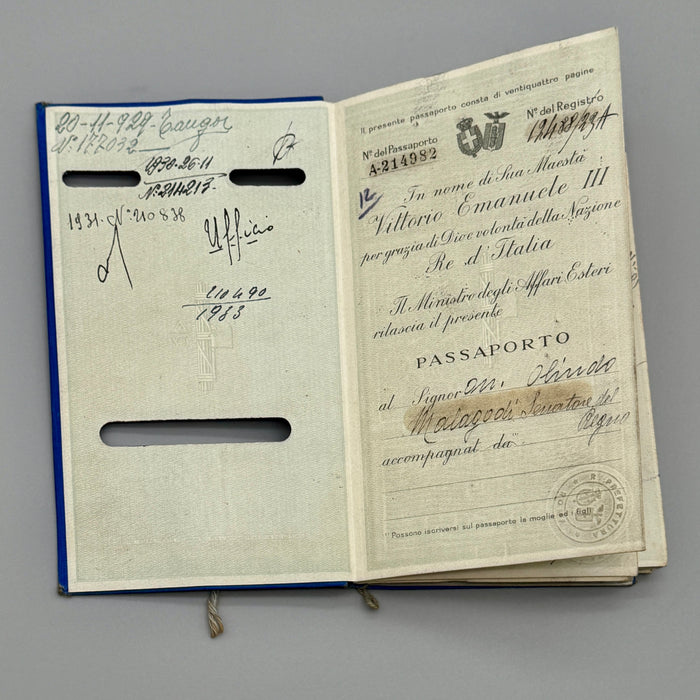 20-11-929
N: 177032
1930-26-11
N: 214213.
1931-N: 210838
Ufficio
210490
1933
Il presente passaporto consta di ventiquattro pagine
N° del Passaporto
A-214982
N° del Registro
12
In nome di Sua Maestà
Vittorio Emanuele III
per grazia di Dio e volontà della Nazione
Re d'Italia
Il Ministro degli Affari Esteri
rilascia il presente
PASSAPORTO
al Signor On. Olindo
Malagodi Senatore del
Regno
accompagnat da
Possono iscriversi sul passaporto la moglie ed i figli
R. PREFETTURA